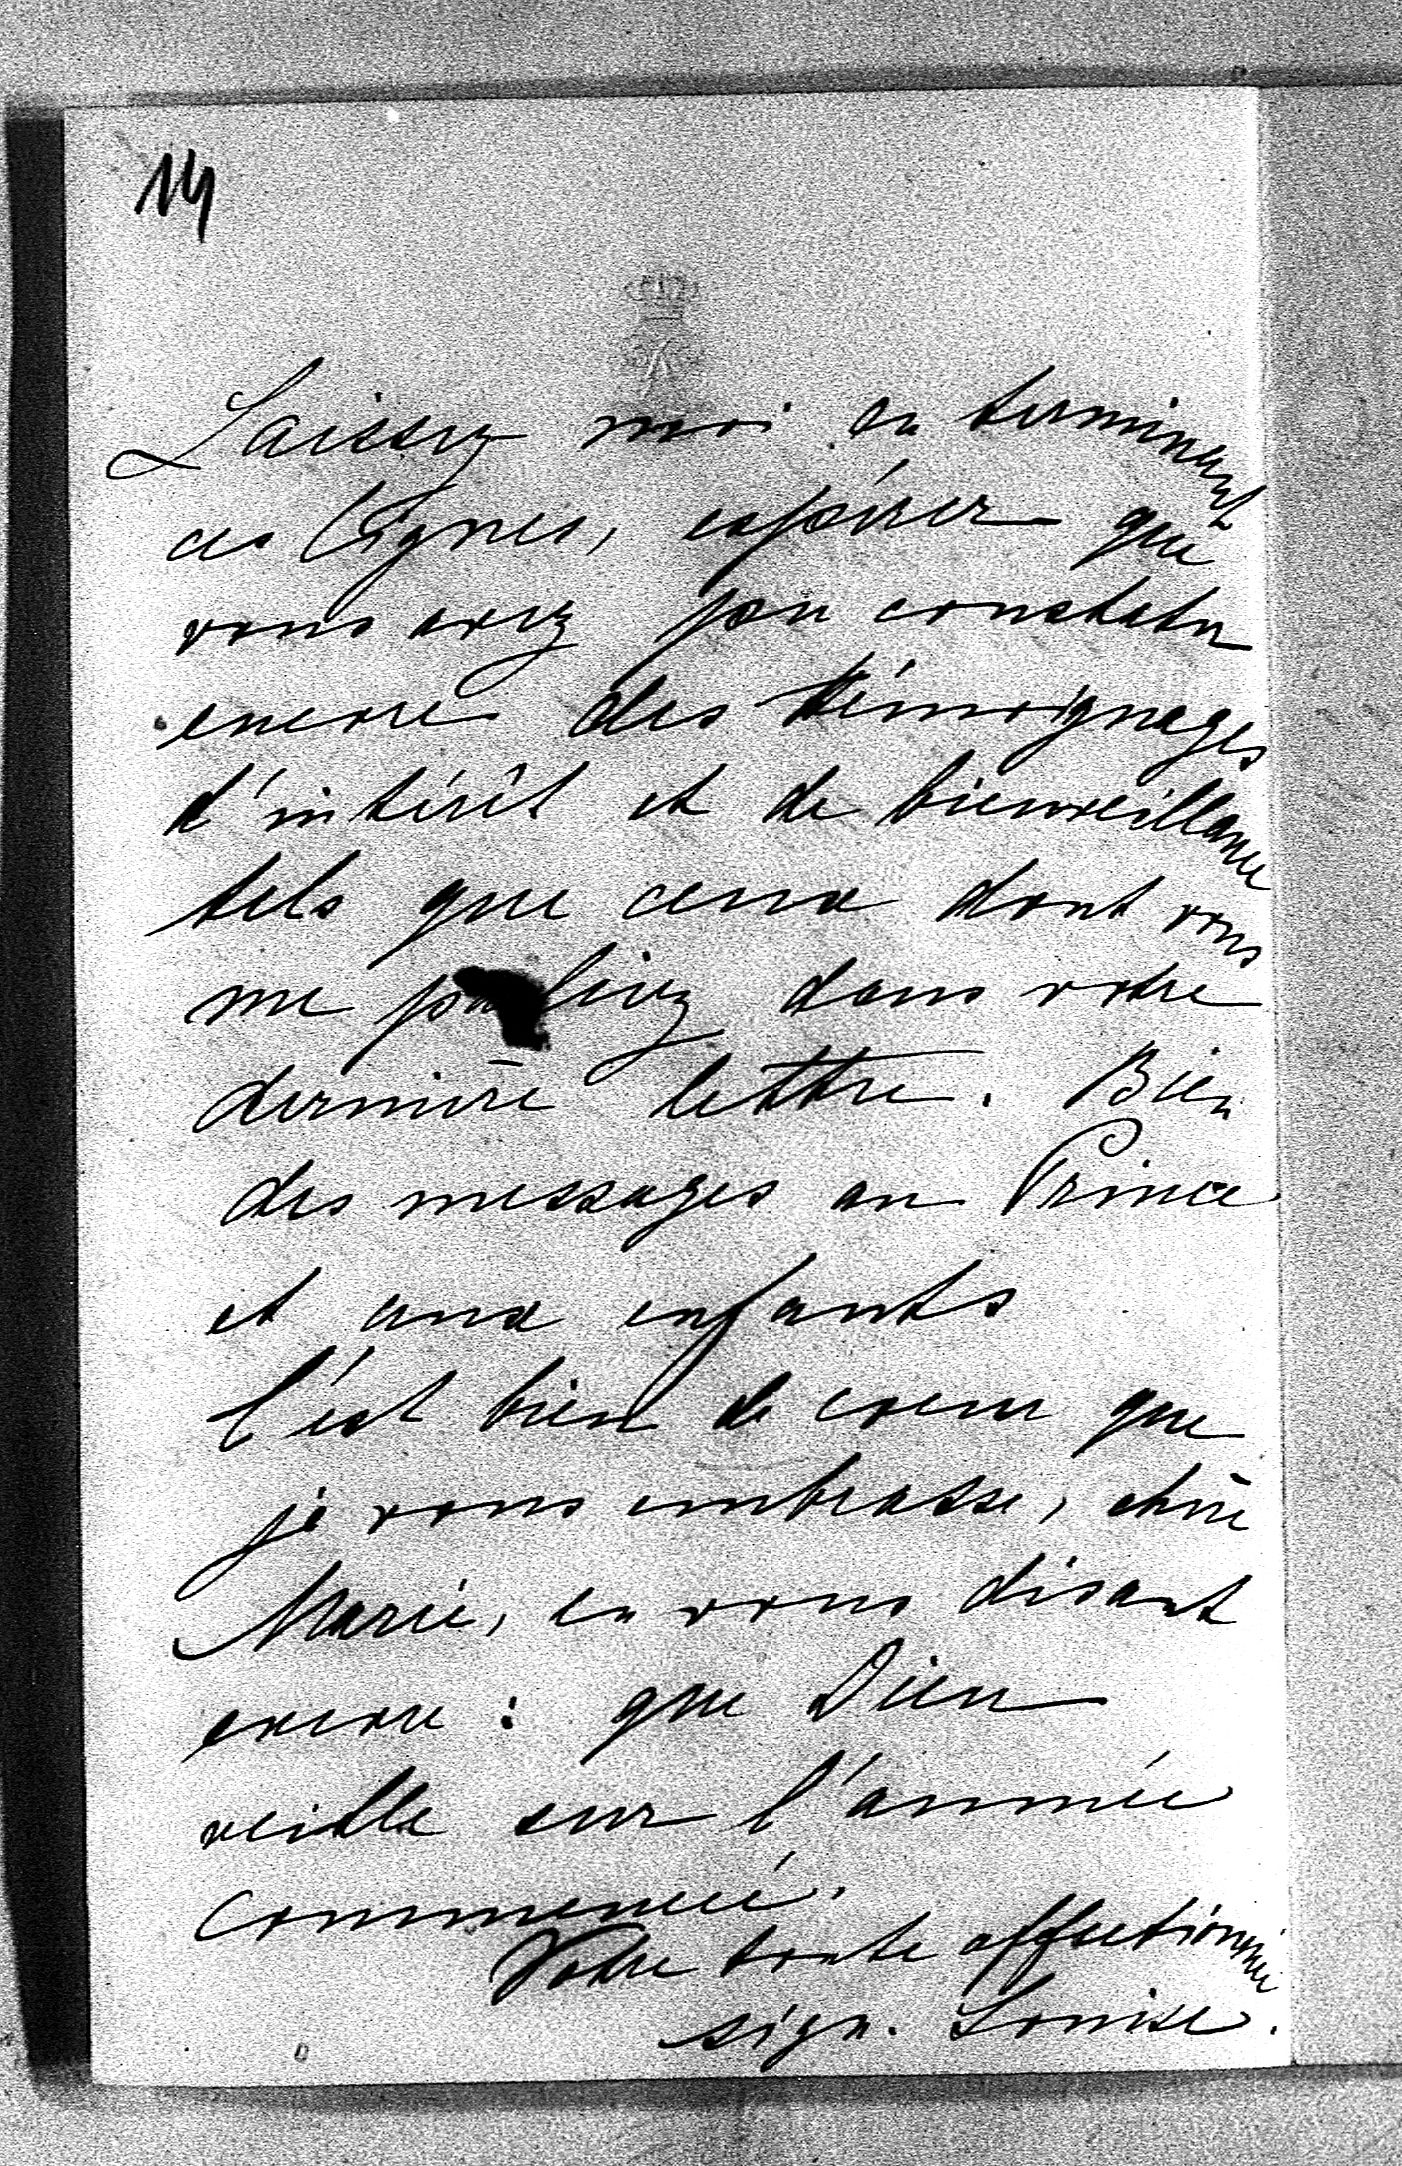 14
Laissez moi en terminant
ces lignes, espérer que
vous avez pu constater
encore des témoignages
d'intérêt et de bienveillance
tels que ceux dont vous
me parliez dans votre
dernière lettre. Bien
des messages au Prince
et aux enfants
C'est bien de coeur que
je vous embrasse, chère
Marie, en vous disant
encore : que Dieu
veille sur l'année
commencée.
Votre toute affectionnée
sign. Louise.